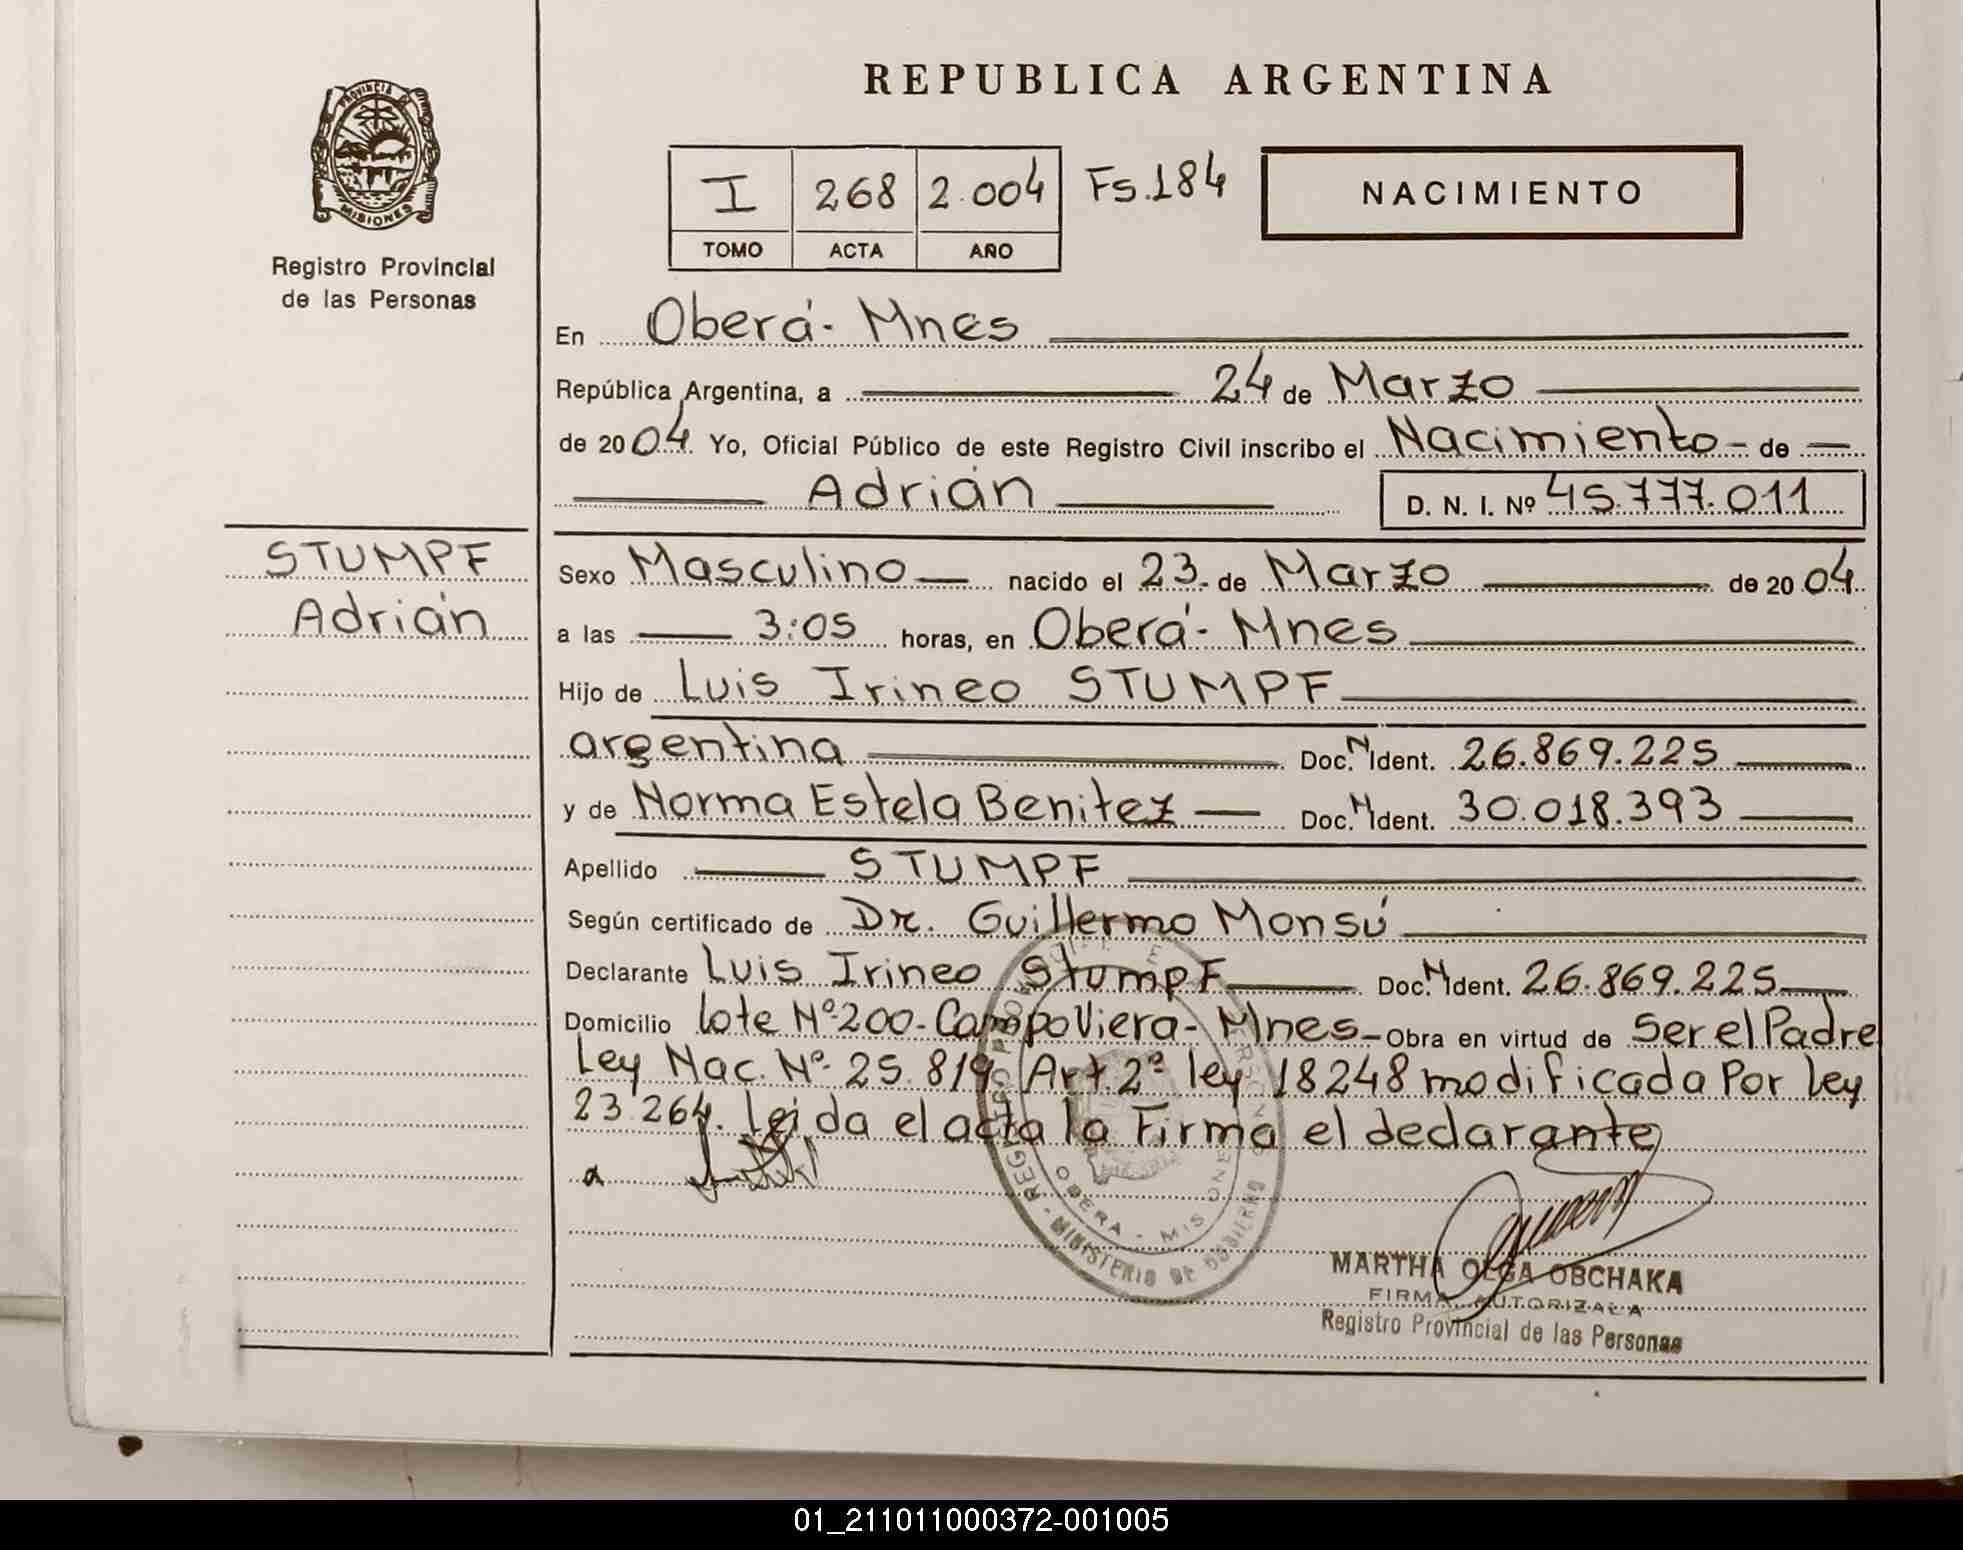 REPUBLICA ARGENTINA
PROVINCIA DE
MISIONES
Registro Provincial
de las Personas
I 268 2.004 Fs.184
TOMO ACTA AÑO
NACIMIENTO
En Oberá - Mnes
República Argentina, a 24 de Marzo
de 2004 Yo, Oficial Público de este Registro Civil inscribo el Nacimiento de
Adrián D. N. I. Nº 45.777.011
STUMPF
Adrián
Sexo Masculino nacido el 23 de Marzo de 2004
a las 3:05 horas, en Oberá - Mnes
Hijo de Luis Irineo STUMPF
argentina Doc. N Ident. 26.869.225
y de Norma Estela Benitez Doc. N Ident. 30.018.393
Apellido STUMPF
Según certificado de Dr. Guillermo Monsú
Declarante Luis Irineo StumpF Doc. N Ident. 26.869.225
Domicilio lote Nº 200 - Campo Viera - Mnes - Obra en virtud de Ser el Padre
Ley Nac. Nº 25.819 Art. 2º ley 18248 modificada Por ley
23.264. Leida el acta la Firma el declarante
OBERA - MISIONES
MINISTERIO DE GOBIERNO
MARTHA OLGA OBCHAKA
FIRMA AUTORIZADA
Registro Provincial de las Personas
01_211011000372-001005